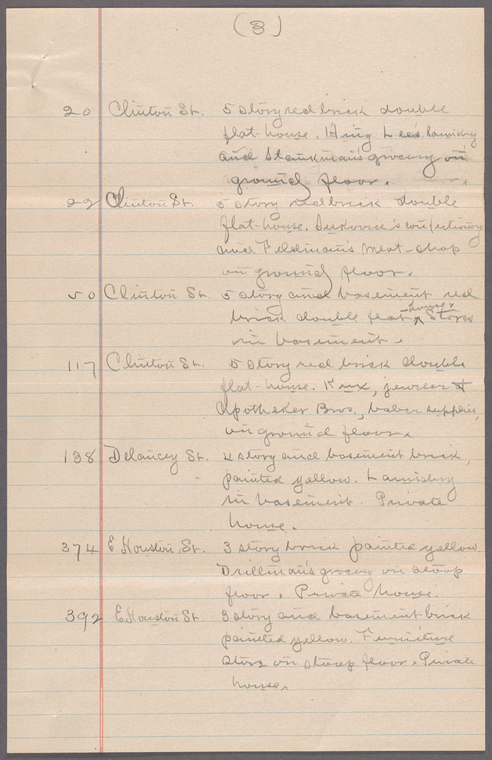 (3)
20 Clinton St. 5 story red brick double
flat-house. Hing Lee's laundry
and Stenkman's grocery on
ground floor.
22 Clinton St. 5 story red brick double
flat-house. confectionery
and Feldman's meat-shop
on ground floor.
50 Clinton St. 5 story and basement red
brick double flat-house. Stores
in basement.
117 Clinton St. 5 story red brick double
flat-house. jeweler &
Apotheker Bros., baber supplies,
on ground floor.
138 Delancey St. 4 story and basement brick,
painted yellow. Laundry
in basement. Private
house.
374 E Houston St. 3 story brick painted yellow.
Drillman's grocery on stoop
floor. Private house.
392 E Houston St. 3 story and basement brick
painted yellow. Furniture
store on stoop floor. Private
house.